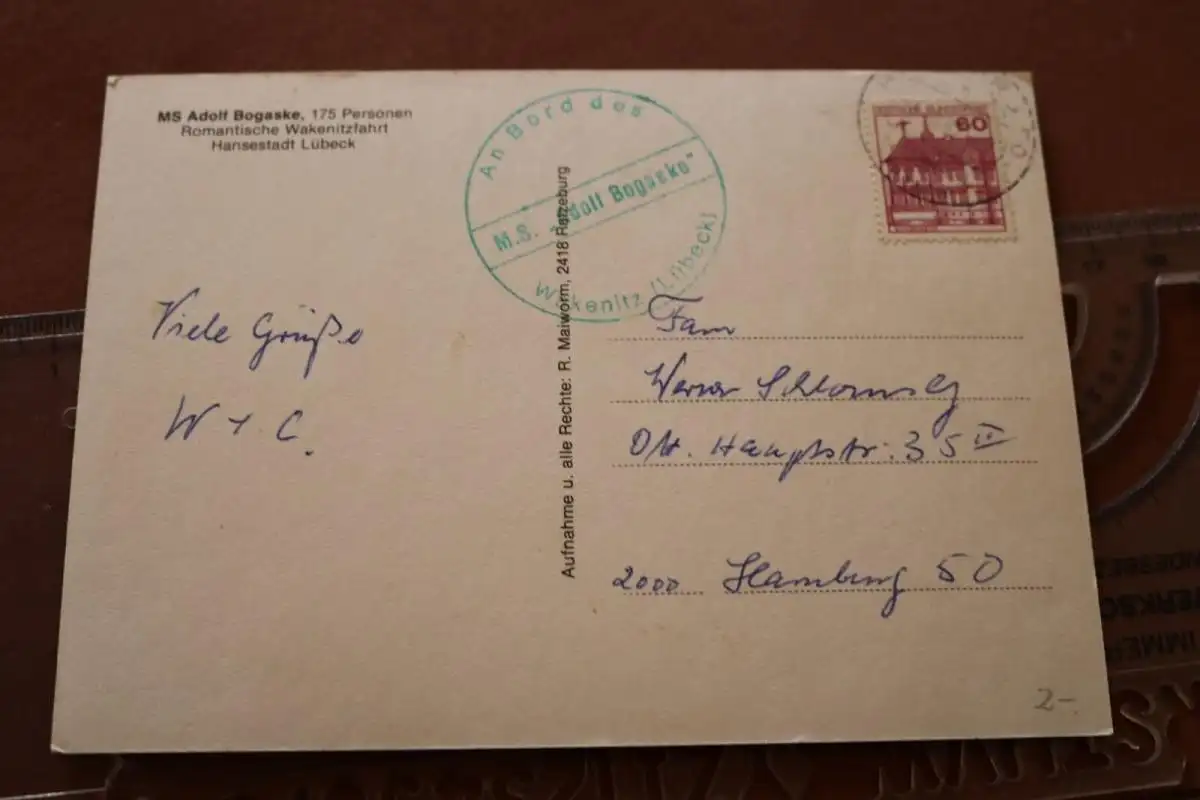 MS Adolf Bogaske, 175 Personen
Romantische Wakenitzfahrt
Hansestadt Lübeck
An Bord des
M.S. „Adolf Bogaske"
Wakenitz (Lübeck)
60
Aufnahme u. alle Rechte: R. Maiworm, 2418 Ratzeburg
Viele Grüße
W + C.
Fam
Werner
Ott. Hauptstr. 35 III
2000 Hamburg 50
2-